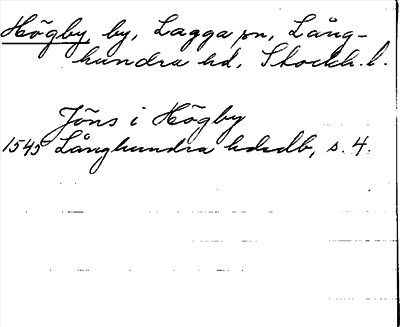 Högby by, Lagga sn, Lång-
hundra hd, Stockh. l.
Jöns i Högby
1545 Långhundra hdsdb, s. 4.